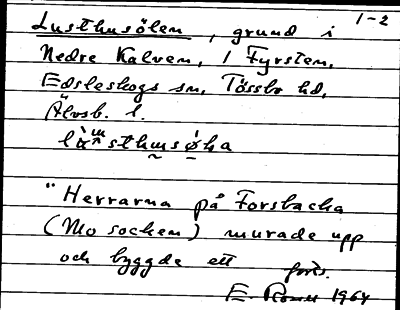 1-2
Lusthusölen, grund i
Nedre Kalven, i Fyrsten,
Edsleskogs sn, Tössbo hd,
Älvsb. l.
"Herrarna på Forsbacka
(Mo socken) murade upp
och byggde ett
forts.
E. 1964